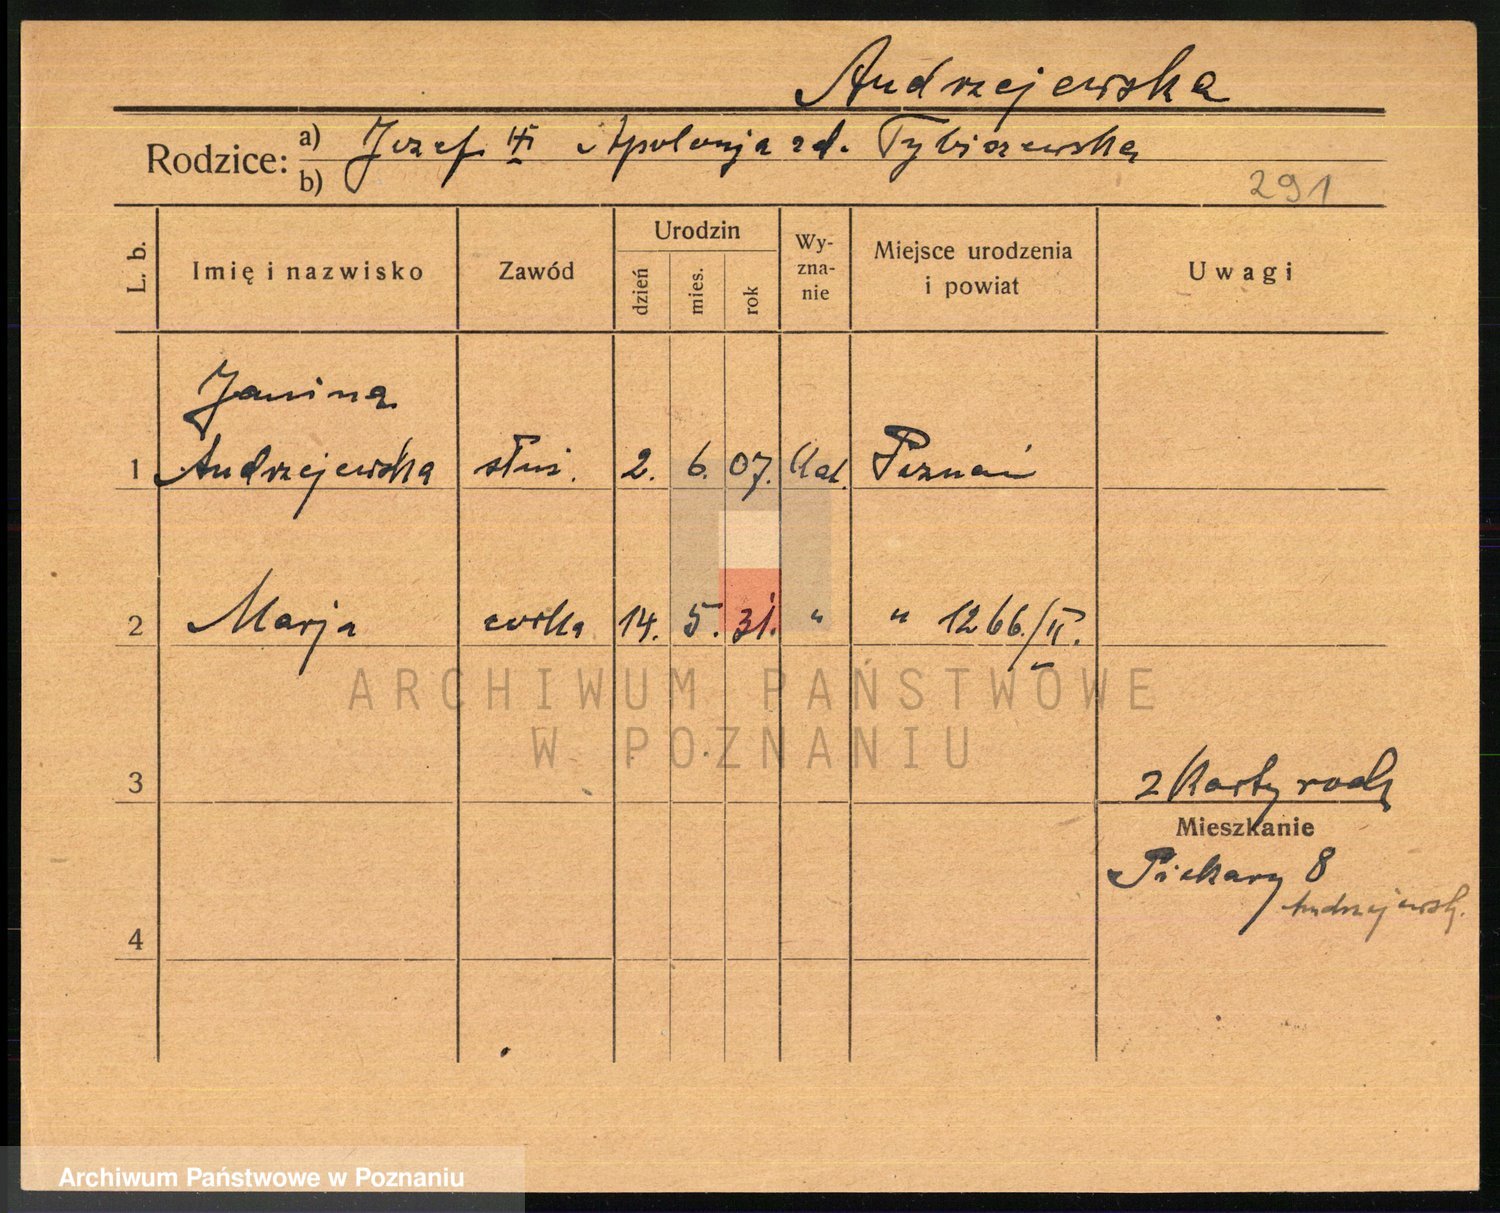 Andrzejewska
Rodzice: a) Józef i Apolonja zd.
b)
291
L. b. Imię i nazwisko Zawód Urodzin dzień mies. rok Wyzna-nie Miejsce urodzenia i powiat Uwagi
Janina
1 Andrzejewska służ. 2. 6. 07. Kat. Poznań
2 Marja córka 14. 5. 31. " " 1266./II.
3 2 Karty rodz
Mieszkanie
Piekary 8
Andrzejewsk.
4
ARCHIWUM PAŃSTWOWE
W POZNANIU
Archiwum Państwowe w Poznaniu